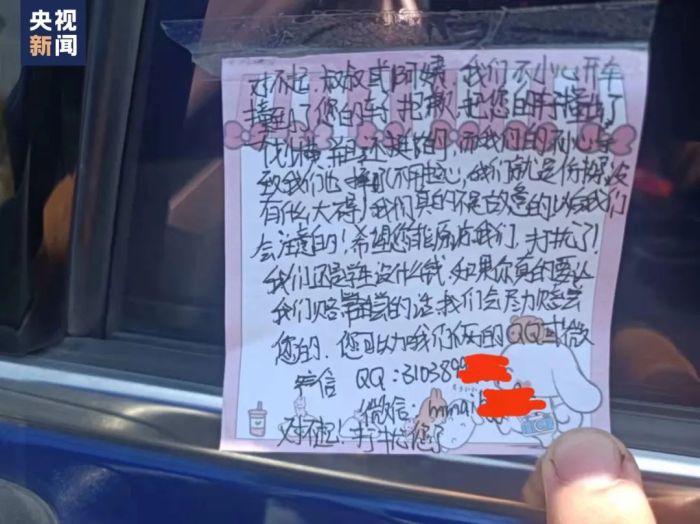 央视
新闻
对不起,叔叔或阿姨,我们不小心开车
撞到了您的车子,抱歉,把您的车子撞出了
伤横,而且还挺的,而我们的不小心导
致我们也摔了(不用担心,我们就是伤横没
有什么大碍)我们真的不是故意的以后我们
会注意的!希望您能原谅我们,打扰了!
我们还是学生没什么钱,如果你真的要让
我们赔偿的话,我们会尽力赔偿
您的.您可以加我们俩的QQ或微
信 QQ:3103899
微信:mmai
对不起,打扰您了